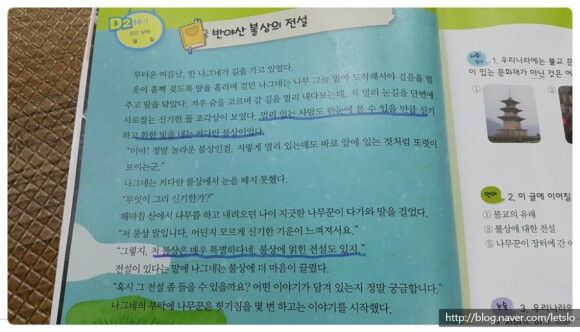 D2 16-1
읽은 날짜
월 일
반야산 불상의 전설
무더운 여름날, 한 나그네가 길을 가고 있었다.
옷이 흠뻑 젖도록 땀을 흘리며 걷던 나그네는 나무 그늘 밑에 도착해서야 걸음을 멈
추고 땀을 닦았다. 겨우 숨을 고르며 갈 길을 멀리 내다보는데, 저 멀리 눈길을 단번에
사로잡는 신기한 돌 조각상이 보였다. 멀리 있는 사람도 한눈에 볼 수 있을 만큼 신기
하고 환한 빛을 내는 커다란 불상이었다.
“이야! 정말 놀라운 불상인걸. 저렇게 멀리 있는데도 바로 앞에 있는 것처럼 또렷이
보이는군.”
나그네는 커다란 불상에서 눈을 떼지 못했다.
“무엇이 그리 신기한가?”
때마침 산에서 나무를 하고 내려오던 나이 지긋한 나무꾼이 다가와 말을 걸었다.
“저 불상 말입니다. 어딘지 모르게 신기한 기운이 느껴져서요.”
“그렇지. 저 불상은 매우 특별하다네. 불상에 얽힌 전설도 있지.”
전설이 있다는 말에 나그네는 불상에 더 마음이 끌렸다.
“혹시 그 전설 좀 들을 수 있을까요? 어떤 이야기가 담겨 있는지 정말 궁금합니다.”
나그네의 부탁에 나무꾼은 헛기침을 몇 번 하고는 이야기를 시작했다.
1. 우리나라에는 불교 문
이 있는 문화재가 아닌 것은 어
①
②
언어
2. 이 글에 이어질
① 불교의 유래
③ 불상에 대한 전설
⑤ 나무꾼이 장터에 간 이
논술
3. 우리나라의
http://blog.naver.com/letslo